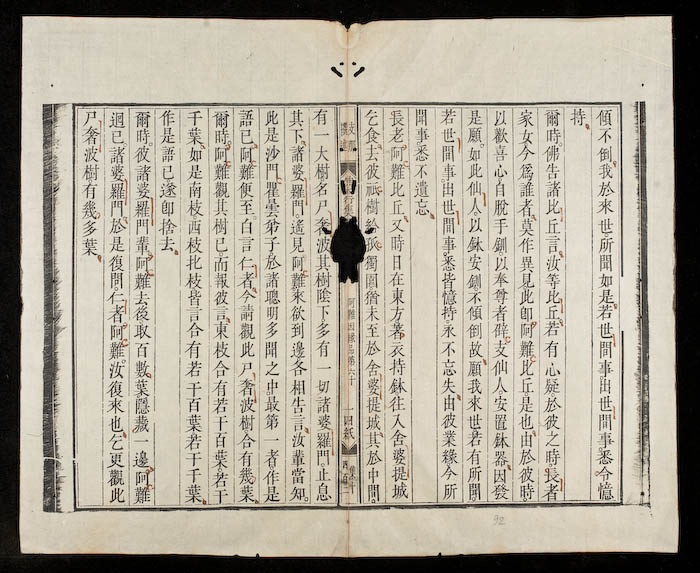 傾不倒。我於來世所聞如是。若世間事出世間事。悉令憶
持。
爾時。佛告諸比丘言。汝等比丘若有心疑。於彼之時。長者
家女今爲誰者。莫作異見。此卽阿難比丘是也。由於彼時
以歡喜心自脫手釧。以奉尊者辟支仙人。安置鉢器。因發
是願。如此仙人。以鉢安釧不傾倒故。願我來世若有所聞
若世間事出世間事。悉皆憶持。永不忘失。由彼業緣今所
聞事。悉不遺忘。
長老阿難比丘。又時日在東方。著衣持鉢。往入舍婆提城
乞食。去彼祇樹給孤獨園。猶未至於舍婆提城。其於中間。
阿難因緣品第六十
一
四紙
有一大樹。名尸奢波。其樹陰下。多有一切諸婆羅門。止息
其下。諸婆羅門。遙見阿難來欲到邊。各相告言。汝輩當知。
此是沙門瞿曇弟子。於諸聰明多聞之中。最第一者。作是
語已。阿難便至。白言。仁者。今請觀此尸奢波樹。合有幾葉。
爾時。阿難觀其樹已。而報彼言。東枝合有若干百葉。若干
千葉。如是南枝西枝北枝。皆言合有若干百葉若干千葉。
作是語已。遂卽捨去。
爾時。彼諸婆羅門輩。阿難去後。取百數葉隱藏一邊。阿難
迴已。諸婆羅門於是復問。仁者阿難。汝復來也。乞更觀此
尸奢波樹有幾多葉
92